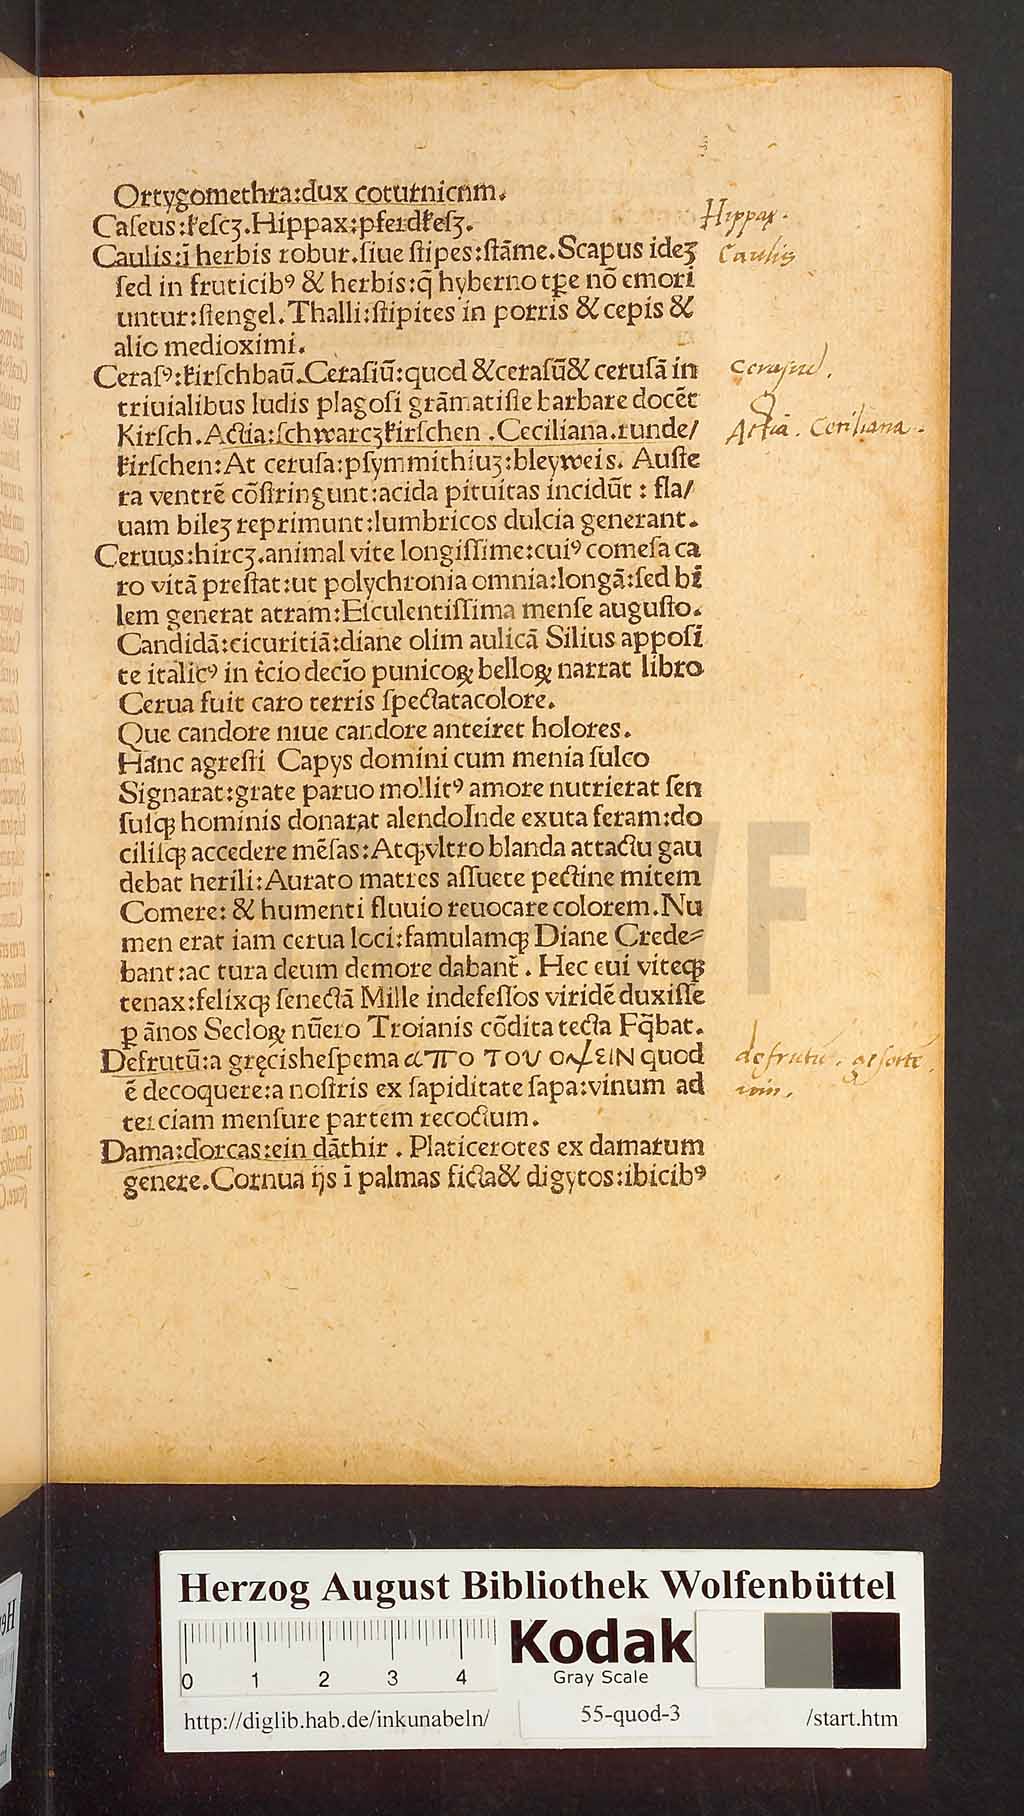 Ortygomethra:dux coturnicnm.
Caſeus:keſcʒ.Hippax:pferdkeſʒ.
Caulis:ī herbis robur.ſiue ſtipes:ſtāme.Scapus ideʒ
ſed in fruticibꝰ & herbis:q̄ hyberno tꝑe nō emori
untur:ſtengel.Thalli:ſtipites in porris & cepis &
alio medioximi.
Ceraſꝰ:kirſchbaū.Ceraſiū:quod & ceraſū & ceruſā in
triuialibus ludis plagoſi grāmatiſte barbare docēt
Kirſch.Actia:ſchwarcʒkirſchen .Ceciliana.runde/
kirſchen:At ceruſa:pſymmithiuʒ:bleyweis. Auſte
ra ventrē cōſtringunt:acida pituitas incidūt : fla/
uam bileʒ reprimunt:lumbricos dulcia generant.
Ceruus:hircʒ.animal vite longiſſime:cuiꝰ comeſa ca
ro vitā preſtat:ut polychronia omnia:longā:ſed bi
lem generat atram:Eſculentiſſima menſe auguſto.
Candidā:cicuritiā:diane olim aulicā Silius appoſi
te italicꝰ in t̄cio decīo punicoꝝ belloꝝ narrat libro
Cerua fuit caro terris ſpectatacolore.
Que candore niue candore anteiret holores.
Hanc agreſti Capys domini cum menia ſulco
Signarat:grate paruo mollitꝰ amore nutrierat ſen
ſuſqꝫ hominis donarat alendoInde exuta feram:do
ciliſqꝫ accedere mēſas:Atqꝫ vltro blanda attactu gau
debat herili:Aurato matres aſſuete pectine mitem
Comere: & humenti fluuio reuocare colorem.Nu
men erat iam cerua loci:famulamqꝫ Diane Crede⸗
bant:ac tura deum demore dabant̄ . Hec eui viteqꝫ
tenax:felixqꝫ ſenectā Mille indefeſſos viridē duxiſſe
ꝑ ānos Secloꝝ nūero Troianis cōdita tecta Fq̄bat.
Defrutū:a gręcisheſpema απο τον οψειν quod
ē decoquere:a noſtris ex ſapiditate ſapa:vinum ad
terciam menſure partem recoctum.
Dama:dorcas:ein dāthir . Platicerotes ex damarum
genere.Cornua ijs ī palmas ficta & digytos:ibicibꝰ
Hippax.
Caulis
Actia. Ceciliana.
defrutū.
vin.
HERZOG AUGUST
Herzog August Bibliothek Wolfenbüttel
0 1 2 3 4
Kodak
Gray Scale
http://diglib.hab.de/inkunabeln/ 55-quod-3 /start.htm